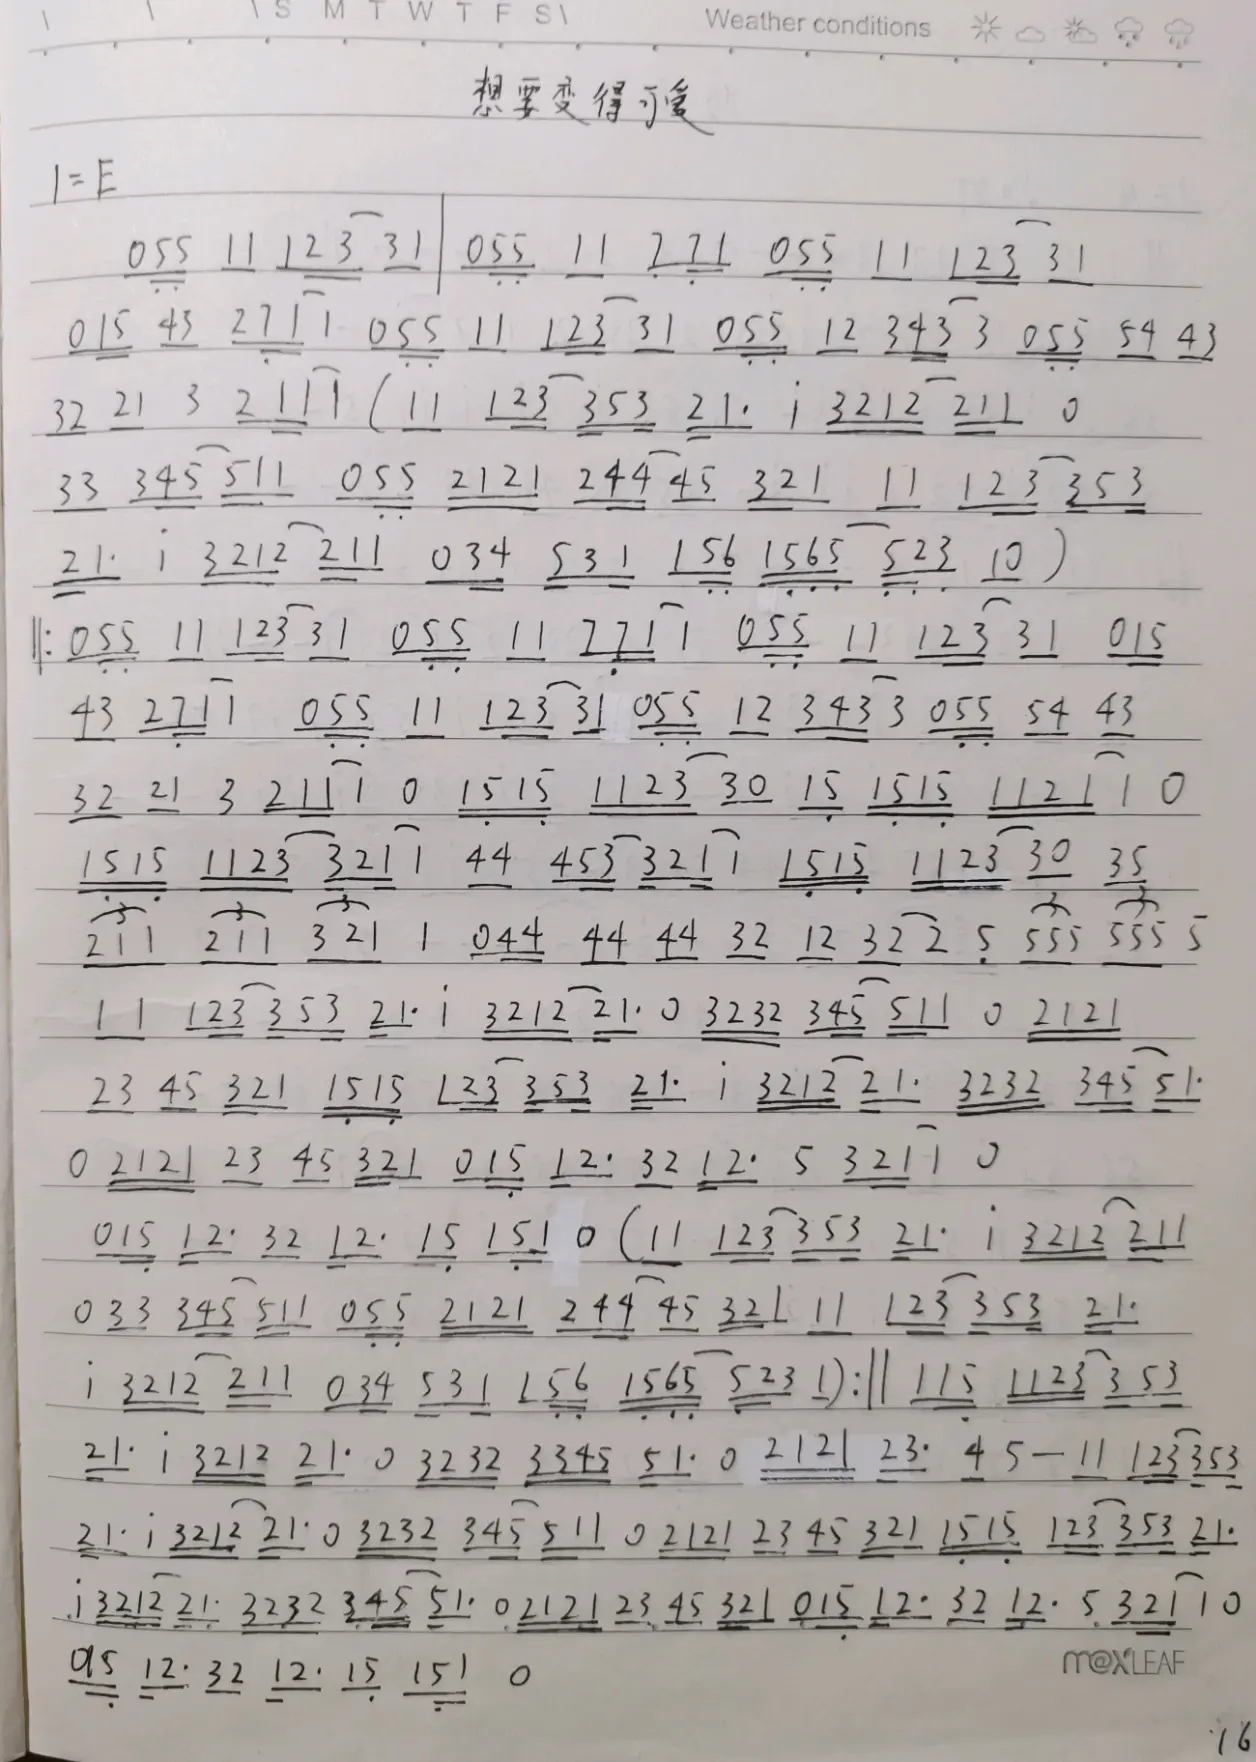 S M T W T F S
Weather conditions
想要变得可爱
1=E
055 11 123 31 | 055 11 771 055 11 123 31
015 43 271 1 055 11 123 31 055 12 343 3 055 54 43
32 21 3 211 1 (11 123 353 21· i 3212 211 0
33 345 511 055 2121 244 45 321 11 123 353
21· i 3212 211 034 531 156 1565 523 10)
‖: 055 11 123 31 055 11 771 1 055 11 123 31 015
43 271 1 055 11 123 31 055 12 343 3 055 54 43
32 21 3 211 1 0 1515 1123 30 15 1515 1121 1 0
1515 1123 321 1 44 453 321 1 1515 1123 30 35
3 3 3 3 3
211 211 321 1 044 44 44 32 12 32 2 5 555 555 5
11 123 353 21· i 3212 21· 0 3232 345 511 0 2121
23 45 321 1515 123 353 21· i 3212 21· 3232 345 51·
0 2121 23 45 321 015 12· 32 12· 5 321 1 0
015 12· 32 12· 15 151 0 (11 123 353 21· i 3212 211
033 345 511 055 2121 244 45 321 11 123 353 21·
i 3212 211 034 531 156 1565 523 1):‖ 115 1123 353
21· i 3212 21· 0 3232 3345 51· 0 2121 23· 4 5 — 11 123 353
21· i 3212 21· 0 3232 345 511 0 2121 23 45 321 1515 123 353 21·
i 3212 21· 3232 345 51· 0 2121 23 45 321 015 12· 32 12· 5 321 1 0
015 12· 32 12· 15 151 0
m@XLEAF
16